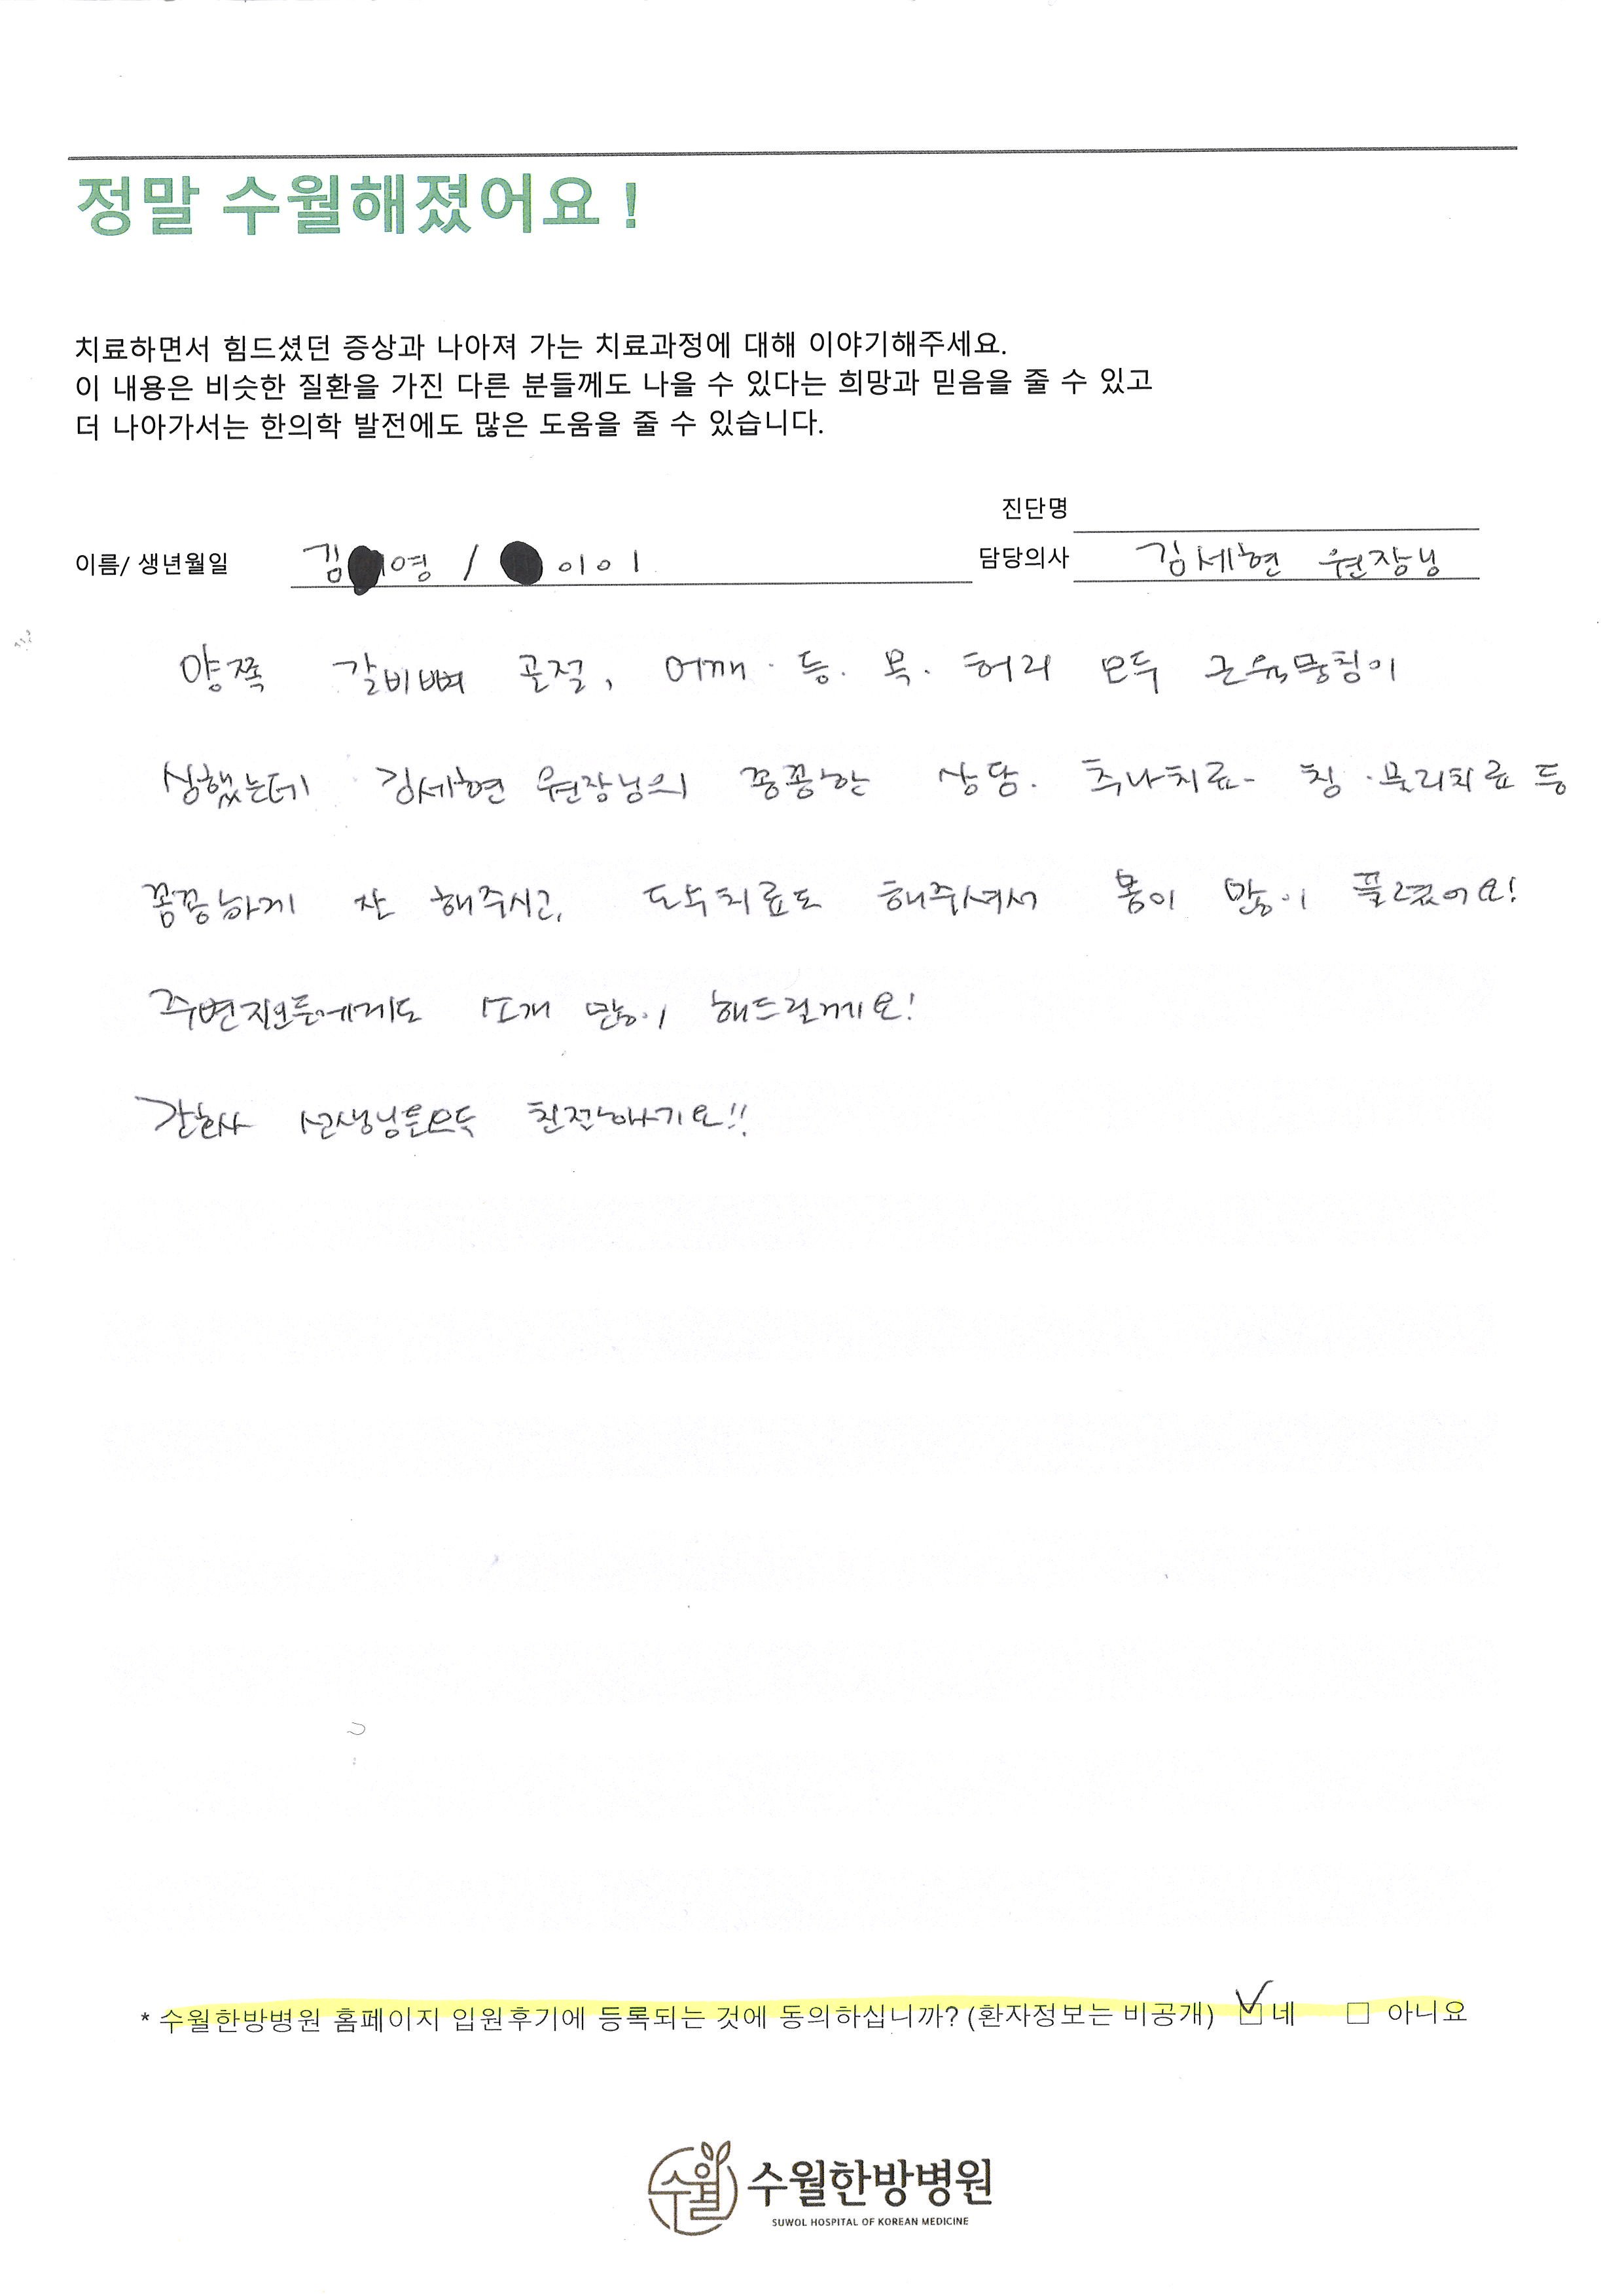 정말 수월해졌어요 !
치료하면서 힘드셨던 증상과 나아져 가는 치료과정에 대해 이야기해주세요.
이 내용은 비슷한 질환을 가진 다른 분들께도 나을 수 있다는 희망과 믿음을 줄 수 있고
더 나아가서는 한의학 발전에도 많은 도움을 줄 수 있습니다.
진단명
이름/ 생년월일 김 영 / 0101 담당의사 김세현 원장님
양쪽 갈비뼈 골절, 어깨·등·목·허리 모두 근육뭉침이
심했는데 김세현 원장님의 꼼꼼한 상담·추나치료·침·물리치료 등
꼼꼼하게 잘 해주시고, 도수치료도 해주셔서 몸이 많이 풀렸어요!
주변지인들에게도 소개 많이 해드릴게요!
간호사 선생님들모두 친절하기요!!
* 수월한방병원 홈페이지 입원후기에 등록되는 것에 동의하십니까? (환자정보는 비공개) ☑ 네 □ 아니요
수월 수월한방병원
SUWOL HOSPITAL OF KOREAN MEDICINE